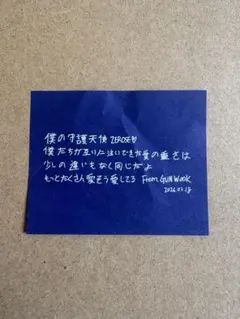 僕の守護天使 ZEROSEが
僕たちが互いに注いできた愛の重さは
少しの違いもなく同じだよ
もっとたくさん愛そう愛してる From GUNWOOK